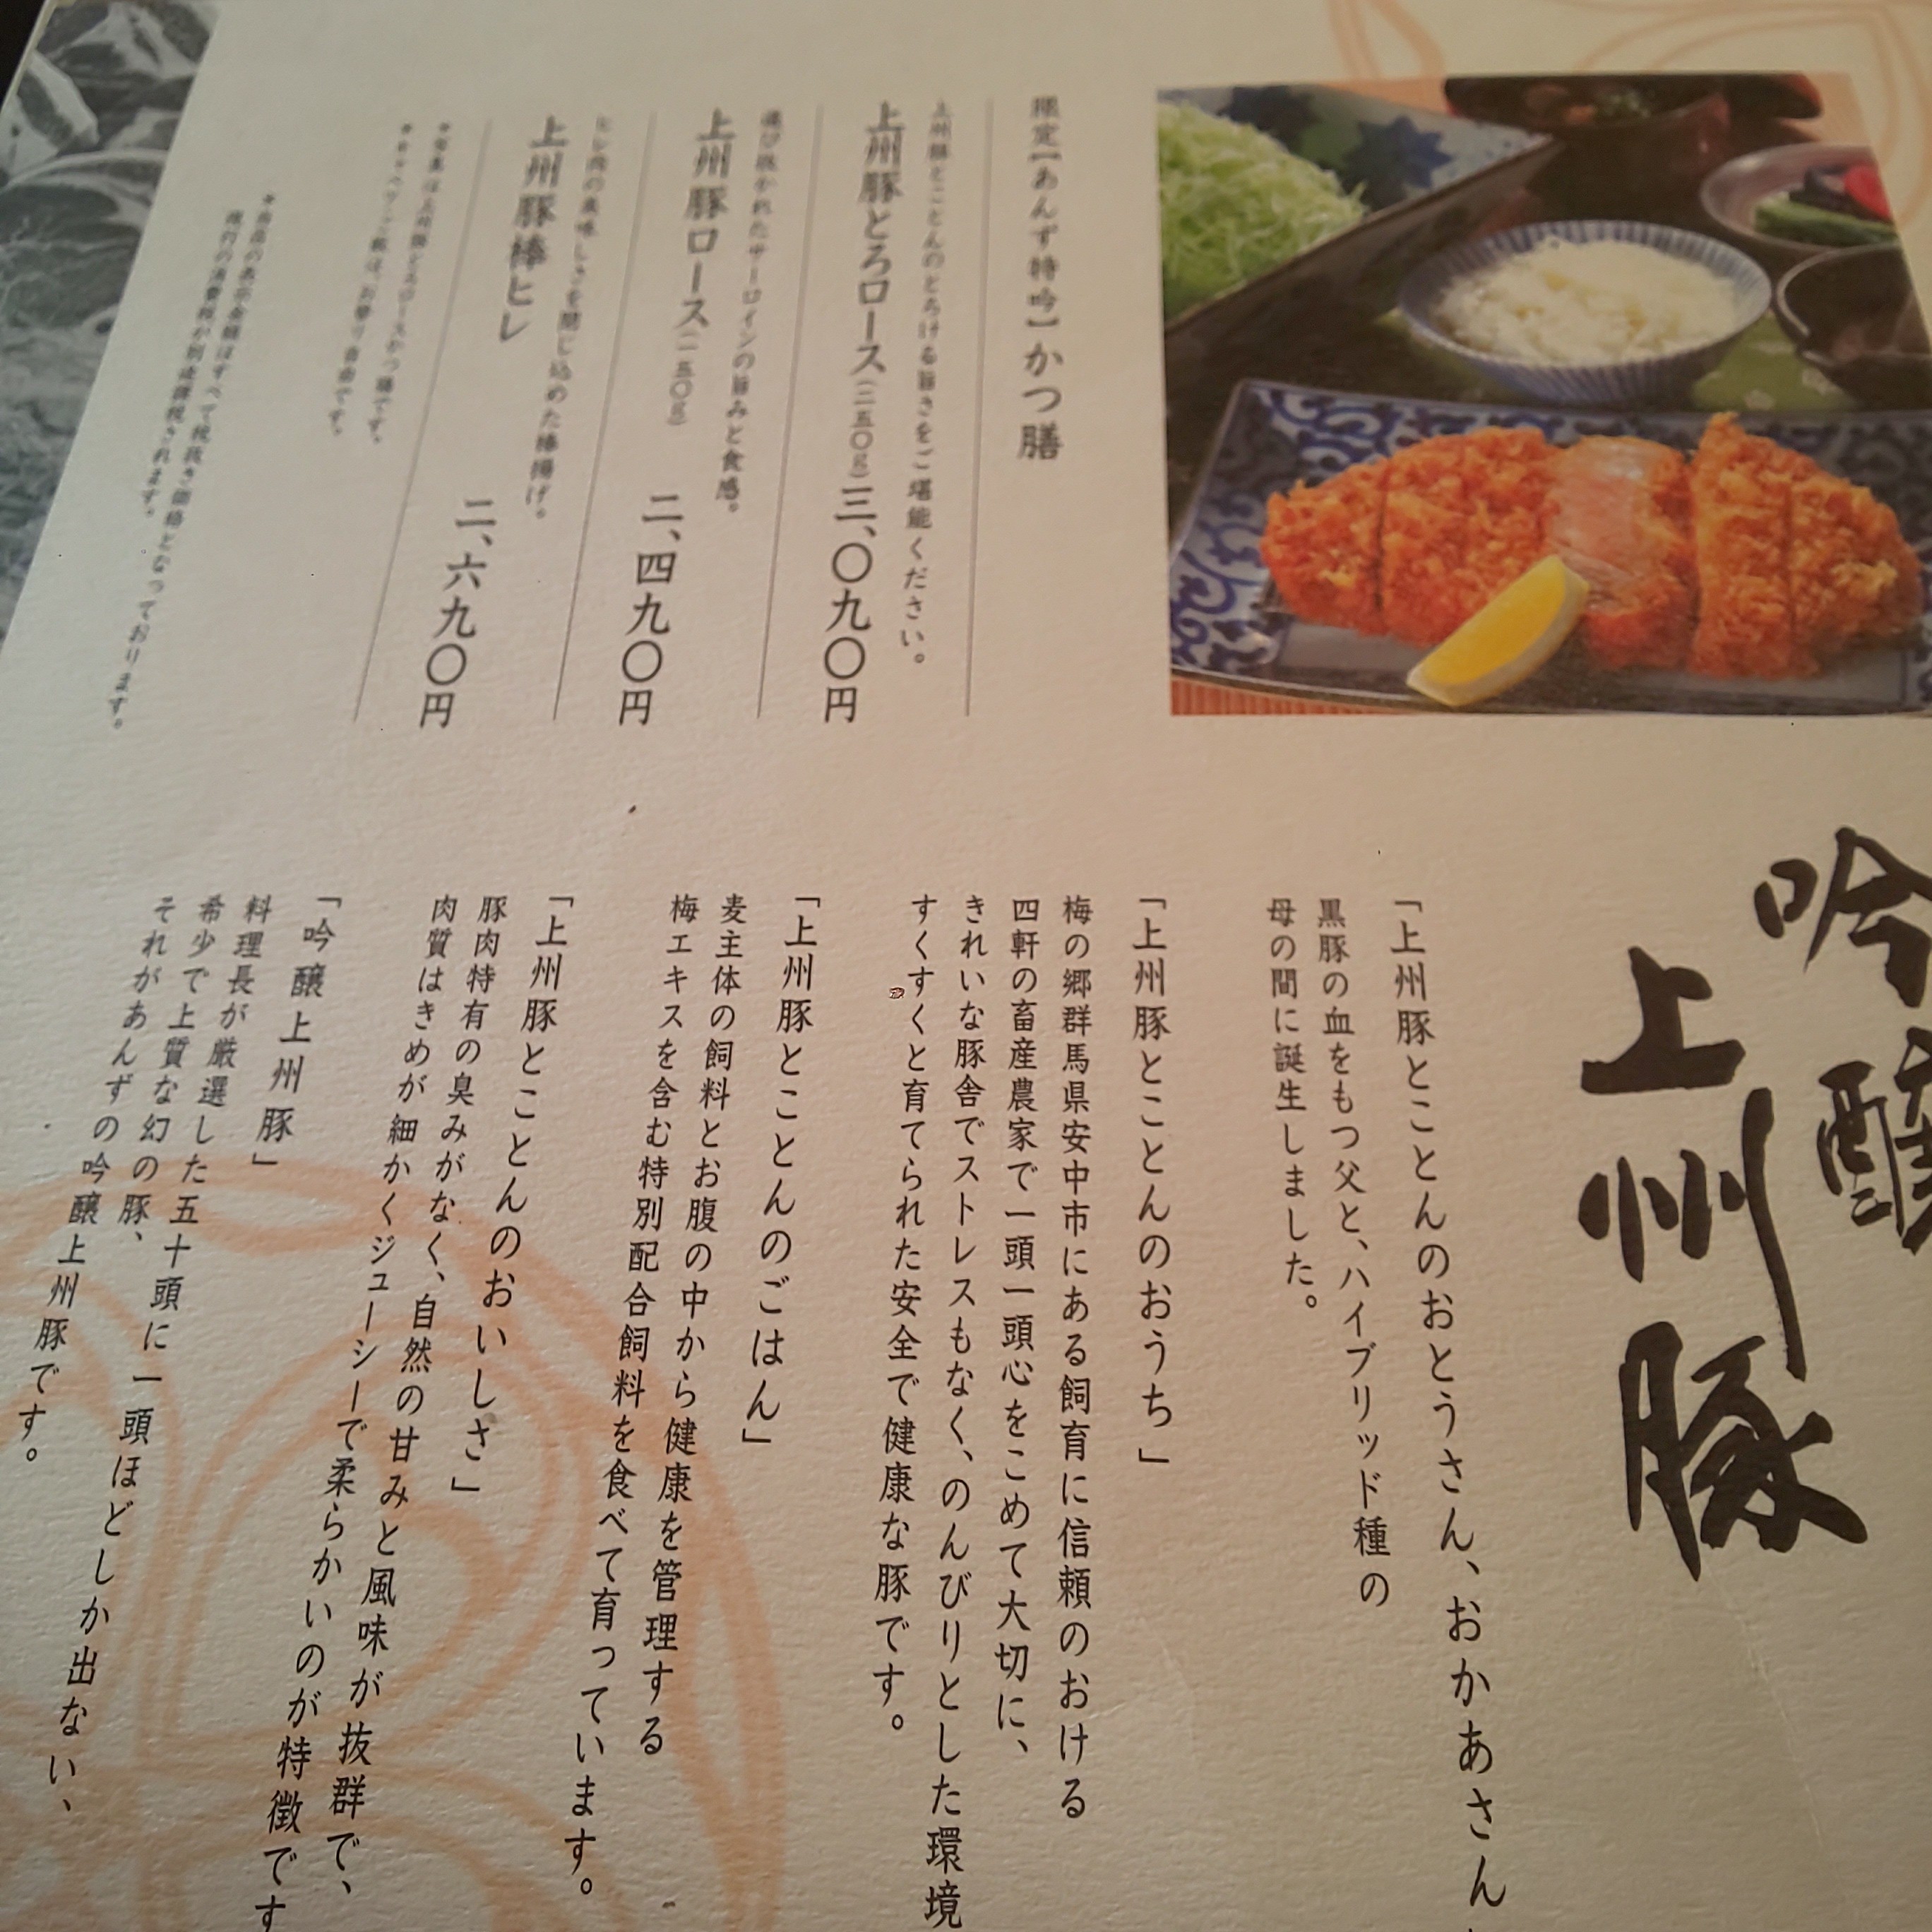 吟醸
上州豚
「上州豚とことんのおとうさん、おかあさん
黒豚の血をもつ父と、ハイブリッド種の
母の間に誕生しました。
「上州豚とことんのおうち」
梅の郷群馬県安中市にある飼育に信頼のおける
四軒の畜産農家で一頭一頭心をこめて大切に、
きれいな豚舎でストレスもなく、のんびりとした環境
すくすくと育てられた安全で健康な豚です。
「上州豚とことんのごはん」
麦主体の飼料とお腹の中から健康を管理する
梅エキスを含む特別配合飼料を食べて育っています。
「上州豚とことんのおいしさ」
豚肉特有の臭みがなく、自然の甘みと風味が抜群で、
肉質はきめが細かくジューシーで柔らかいのが特徴です
「吟醸上州豚」
料理長が厳選した五十頭に一頭ほどしか出ない、
希少で上質な幻の豚、
それがあんずの吟醸上州豚です。
限定【あんず特吟】かつ膳
上州豚とことんのとろける旨さをご堪能ください。
上州豚とろロース(二五〇g)三、〇九〇円
選び抜かれたサーロインの旨みと食感。
上州豚ロース(一五〇g) 二、四九〇円
ヒレ肉の美味しさを閉じ込めた棒揚げ。
上州豚棒ヒレ 二、六九〇円
*写真は上州豚とろロースかつ膳です。
*キャベツ・ご飯は、お替り自由です。
*商品の表示金額はすべて税抜き価格となっております。
規行の消費税が別途課税されます。